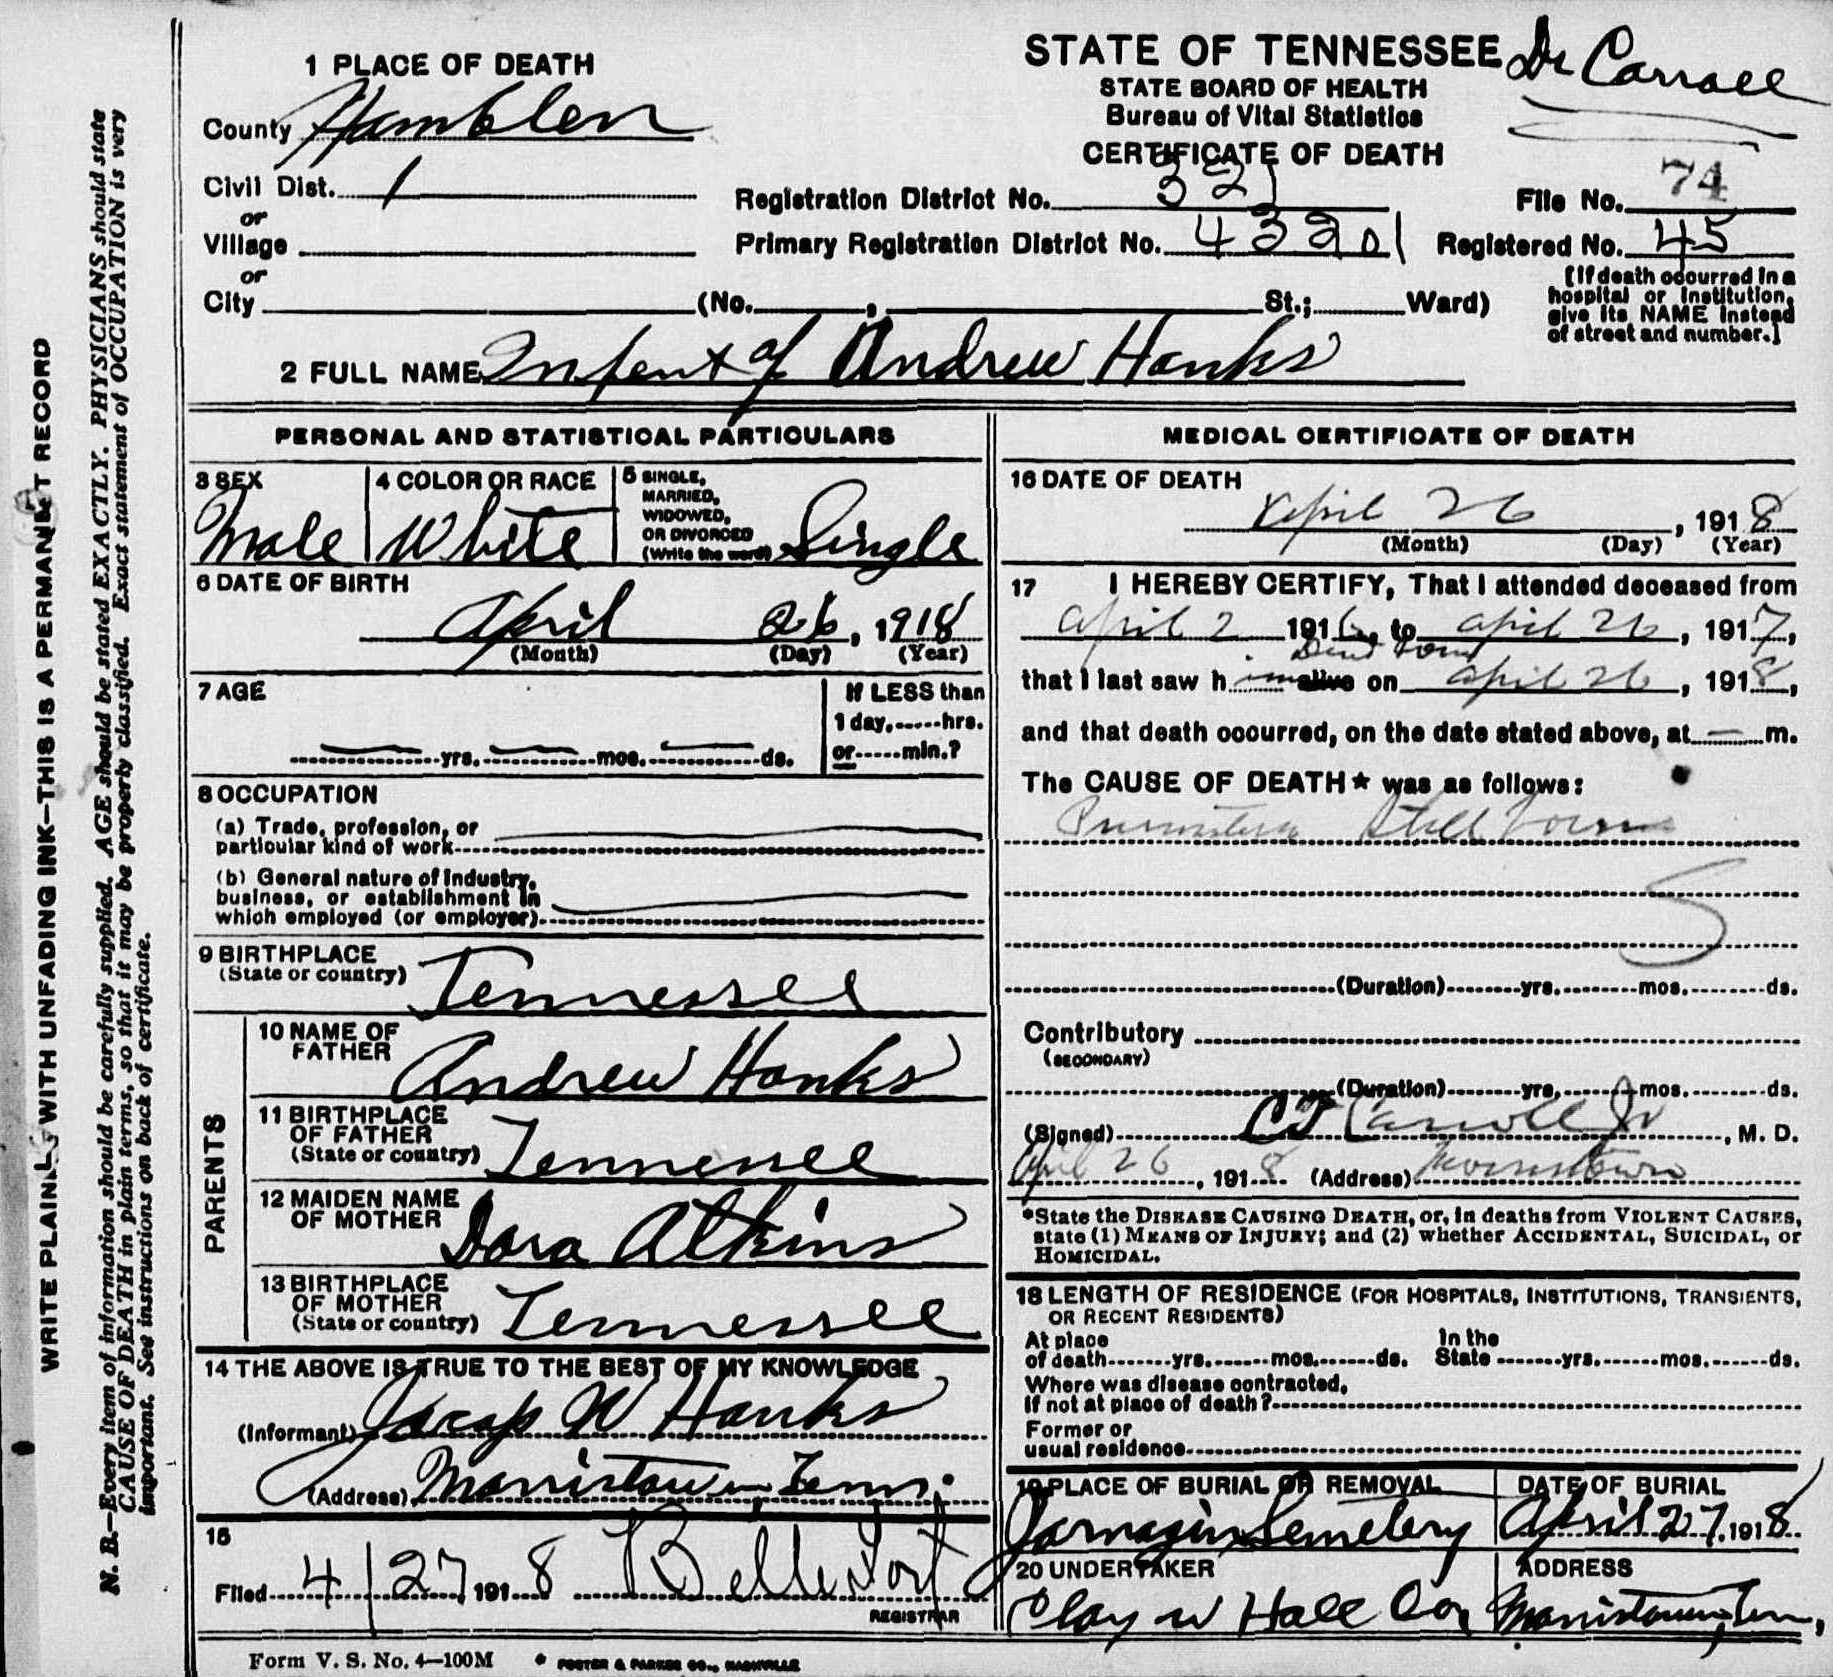 WRITE PLAINLY WITH UNFADING INK—THIS IS A PERMANENT RECORD
N. B.—Every item of information should be carefully supplied. AGE should be stated EXACTLY. PHYSICIANS should state
CAUSE OF DEATH in plain terms, so that it may be properly classified. Exact statement of OCCUPATION is very
important. See instructions on back of certificate.
STATE OF TENNESSEE Dr Carroll
STATE BOARD OF HEALTH
Bureau of Vital Statistics
CERTIFICATE OF DEATH
1 PLACE OF DEATH
County Hamblen
Civil Dist. 1
or
Village
or
City (No. , St.; Ward)
Registration District No. 321
File No. 74
Primary Registration District No. 43201
Registered No. 45
[If death occurred in a
hospital or institution,
give its NAME instead
of street and number.]
2 FULL NAME Infent of Andrew Hanks
PERSONAL AND STATISTICAL PARTICULARS
3 SEX
Male
4 COLOR OR RACE
White
5 SINGLE,
MARRIED,
WIDOWED,
OR DIVORCED
(Write the word) Single
6 DATE OF BIRTH
April 26, 1918
(Month) (Day) (Year)
7 AGE
If LESS than
1 day, hrs.
yrs. mos. ds. or min.?
8 OCCUPATION
(a) Trade, profession, or
particular kind of work
(b) General nature of industry,
business, or establishment in
which employed (or employer)
9 BIRTHPLACE
(State or country) Tennessee
PARENTS
10 NAME OF
FATHER Andrew Hanks
11 BIRTHPLACE
OF FATHER
(State or country) Tennessee
12 MAIDEN NAME
OF MOTHER Dora Atkins
13 BIRTHPLACE
OF MOTHER
(State or country) Tennessee
14 THE ABOVE IS TRUE TO THE BEST OF MY KNOWLEDGE
(Informant) W Hanks
(Address) Morristown, Tenn.
15
Filed 4/27 1918 Belle
REGISTRAR
MEDICAL CERTIFICATE OF DEATH
16 DATE OF DEATH
April 26, 1918
(Month) (Day) (Year)
17 I HEREBY CERTIFY, That I attended deceased from
April 2 1916, to April 26, 1917,
Dead born
that I last saw him alive on April 26, 1918,
and that death occurred, on the date stated above, at — m.
The CAUSE OF DEATH* was as follows:
Still born
(Duration) yrs. mos. ds.
Contributory
(SECONDARY)
(Duration) yrs. mos. ds.
(Signed) C J Carroll Jr, M. D.
April 26, 1918 (Address) Morristown
*State the DISEASE CAUSING DEATH, or, in deaths from VIOLENT CAUSES,
state (1) MEANS OF INJURY; and (2) whether ACCIDENTAL, SUICIDAL, or
HOMICIDAL.
18 LENGTH OF RESIDENCE (FOR HOSPITALS, INSTITUTIONS, TRANSIENTS,
OR RECENT RESIDENTS)
At place In the
of death yrs. mos. ds. State yrs. mos. ds.
Where was disease contracted,
if not at place of death?
Former or
usual residence
19 PLACE OF BURIAL OR REMOVAL
Jarnagin Semetery
DATE OF BURIAL
April 27, 1918
20 UNDERTAKER
Clay W Hall Co,
ADDRESS
Morristown, Tenn,
Form V. S. No. 4—100M FOSTER & PARKES CO., NASHVILLE